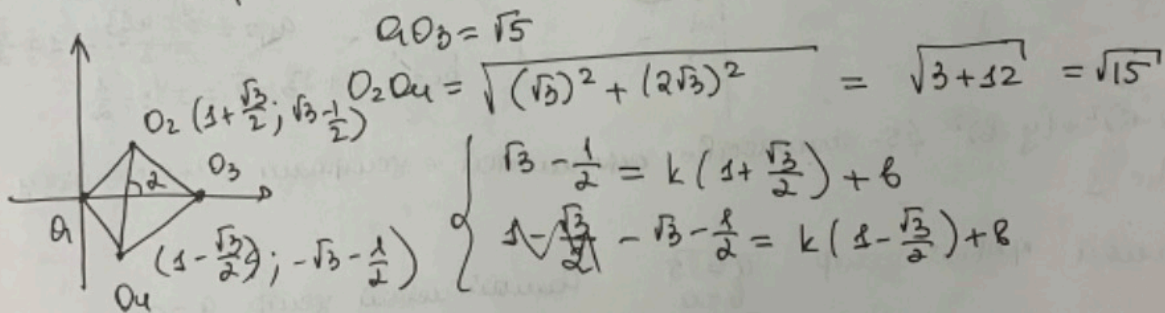 O₁O₃ = √5
O₂O₄ = √((√3)² + (2√3)²) = √(3+12) = √15
O₂ (1+√3/2; √3-1/2)
O₃
2
O₁
(1-√3/2); -√3-1/2)
O₄
{ √3 - 1/2 = k(1+√3/2) + b
- √3 - 1/2 = k(1-√3/2) + b